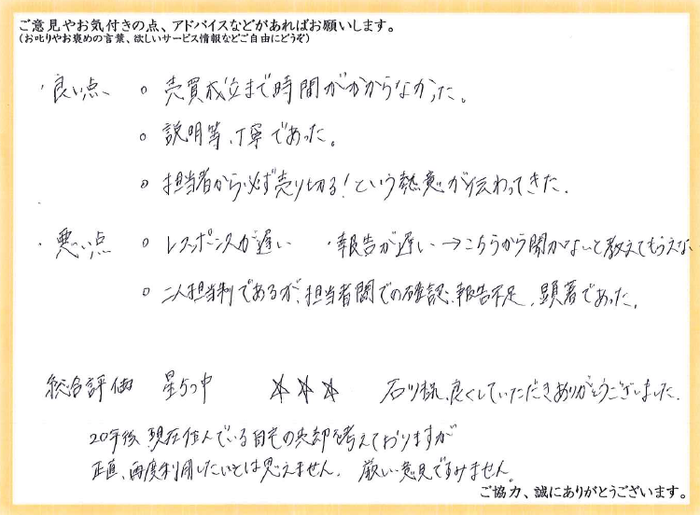 ご意見やお気付きの点、アドバイスなどがあればお願いします。
(お叱りやお褒めの言葉、欲しいサービス情報などご自由にどうぞ)
・良い点 ○ 売買成立まで時間がかからなかった。
○ 説明等、丁寧であった。
○ 担当者から必ず売り切る!という熱意が伝わってきた。
・悪い点 ○ レスポンスが遅い ・報告が遅い→こちらから聞かないと教えてもらえない
○ 二人担当制であるが、担当者間での確認、報告不足、顕著であった。
総合評価 星5つ中 ☆☆☆ 様、良くしていただきありがとうございました。
20年後、現在住んでいる自宅の売却を考えておりますが
正直、再度利用したいとは思えません。厳しい意見ですみません。
ご協力、誠にありがとうございます。